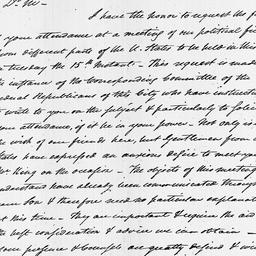 Dr. Sir -
I have the honor to request the f
your attendance at a meeting of our political frie
from different parts of the U. States to be held in this
on tuesday the 15th Instant - This request is made
the instance of the Corresponding Committee of the
ederal Republicans of this City who have instructed
to write to you on the subject & particularly to solici
your attendance, if it be in your power - Not only is
the wish of our friends here, but Gentlemen from o
States have expressed an anxious desire to meet you
Mr King on the occasion - The objects of this meeting
understand have already been communicated through
son & therefore need no particular explanatio
at this time - They are important & require the aid
the best consideration & advice we can obtain -
your presence & Counsels are greatly desired &